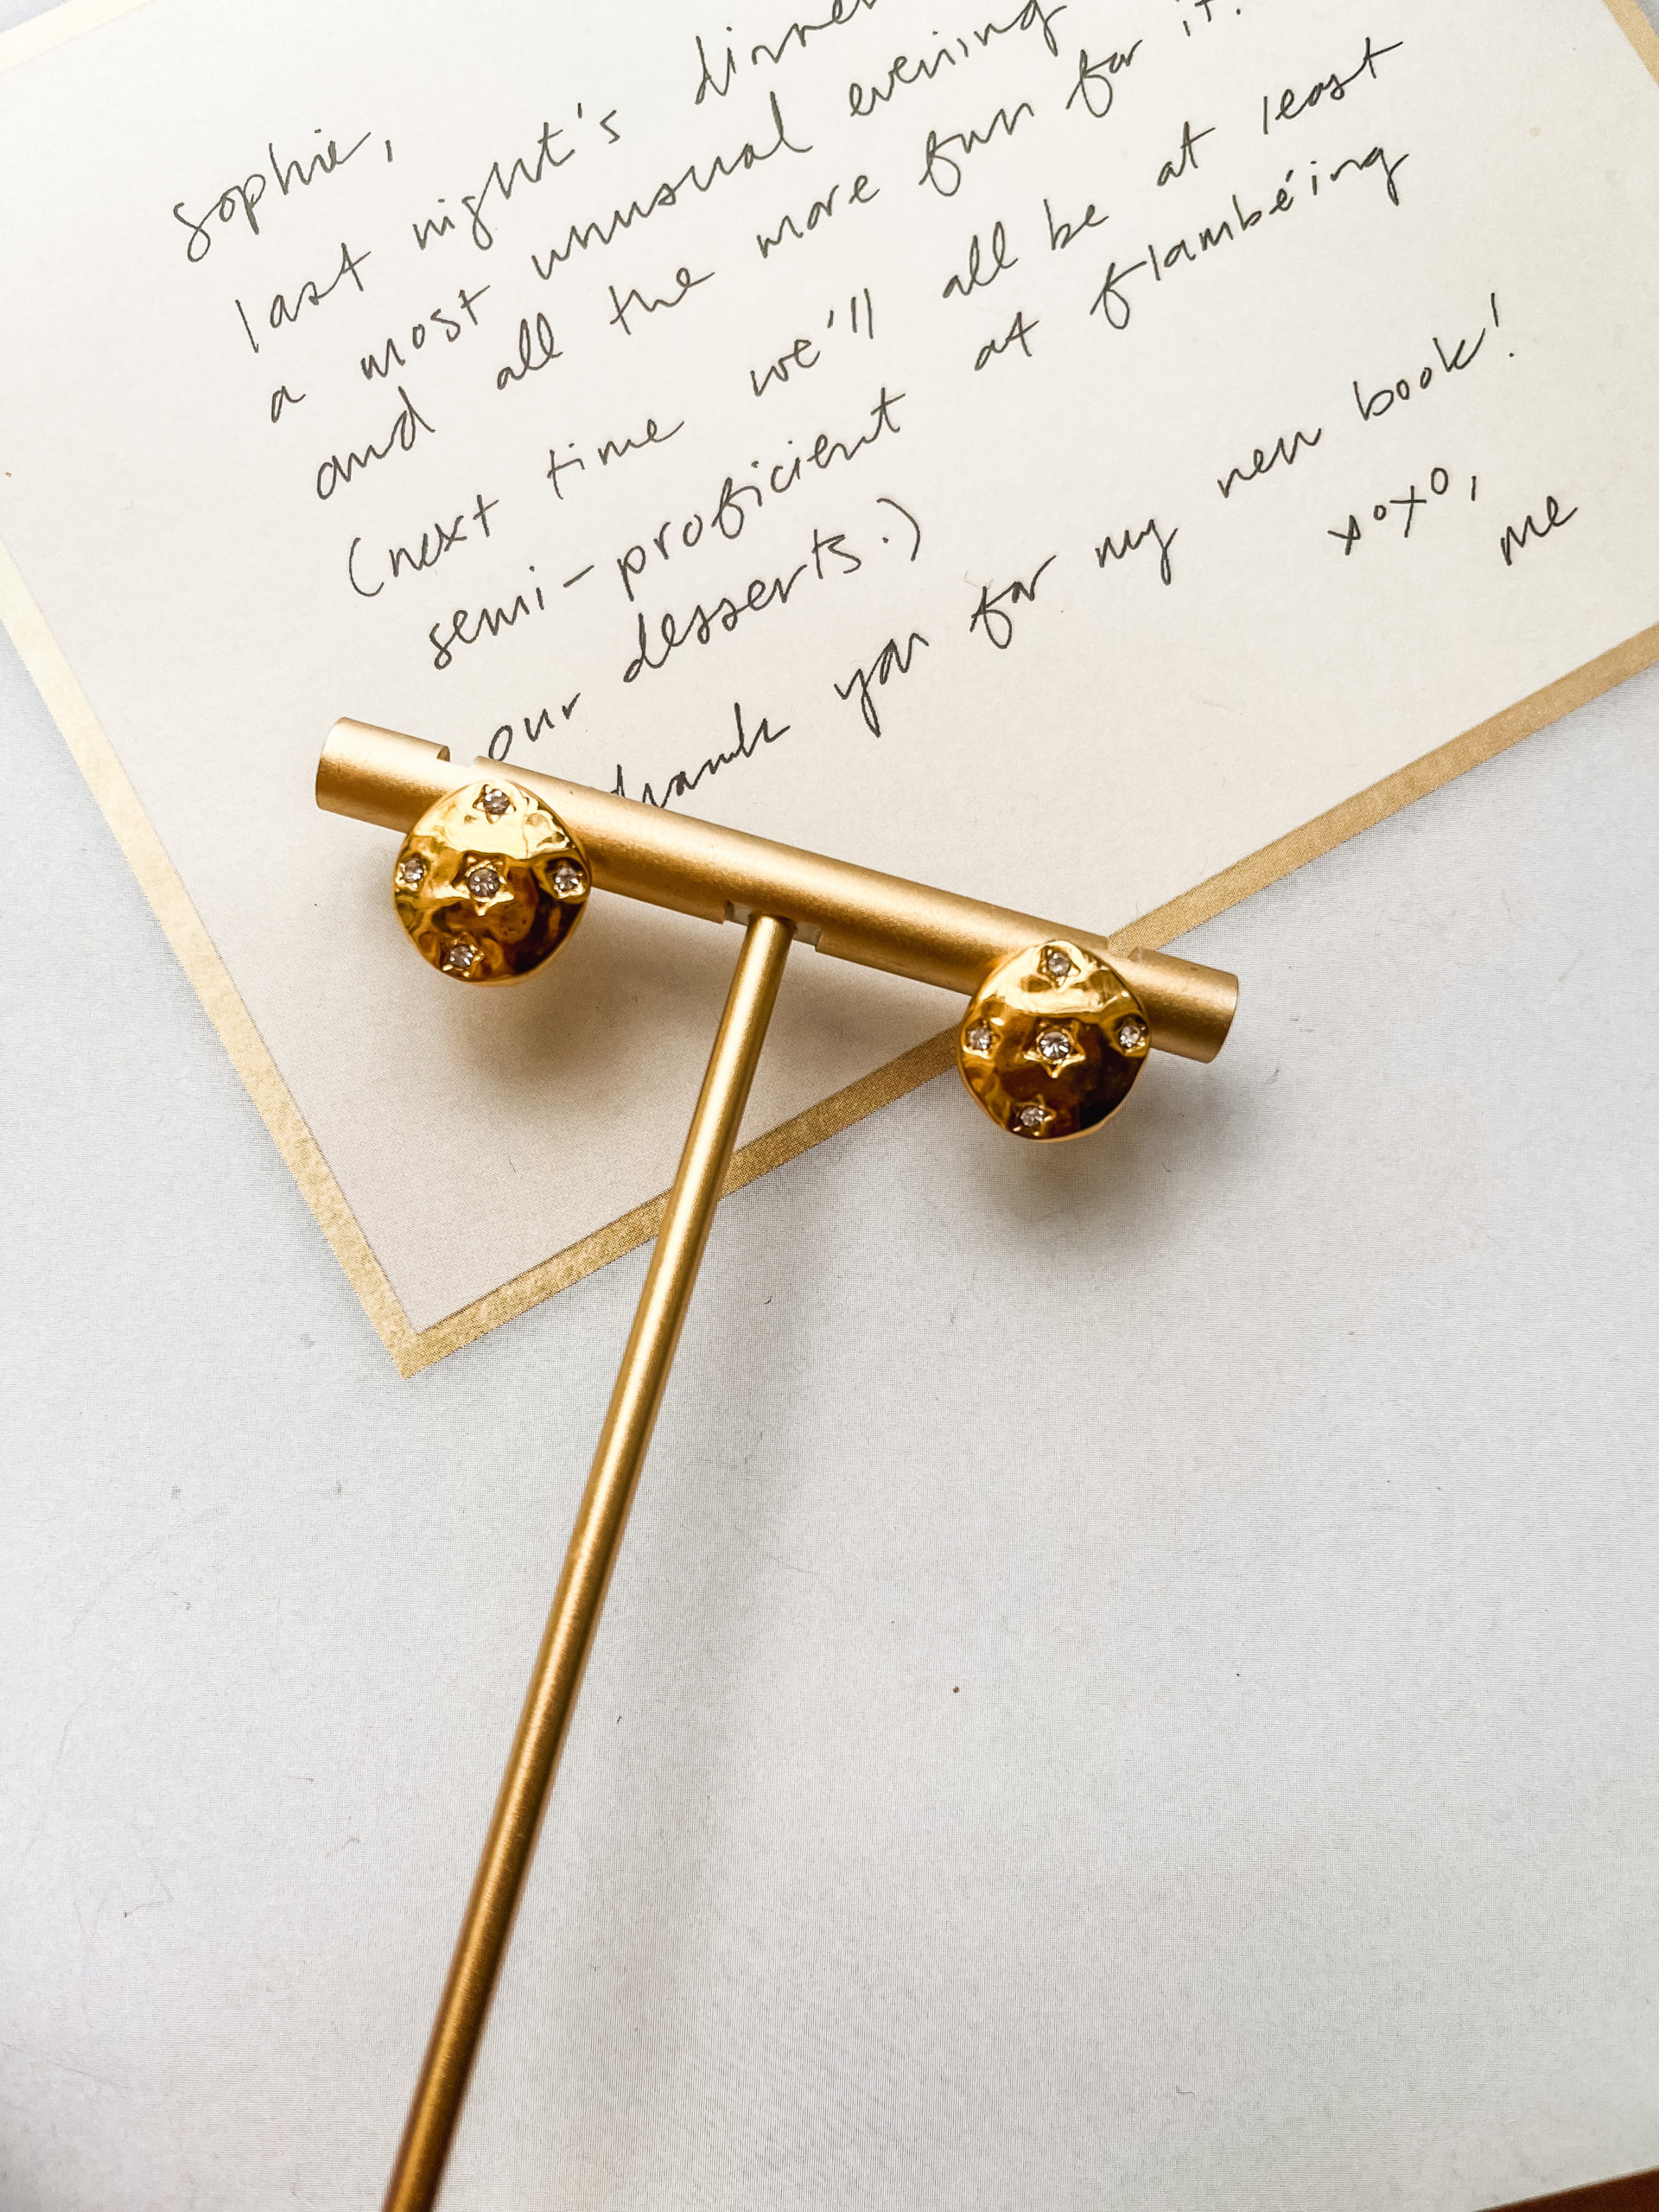 sophie,
last night's dinner
a most unusual evening
and all the more fun for it.
(next time we'll all be at least
semi-proficient at flambéing
our desserts.)
thank you for my new book!
xoxo,
me